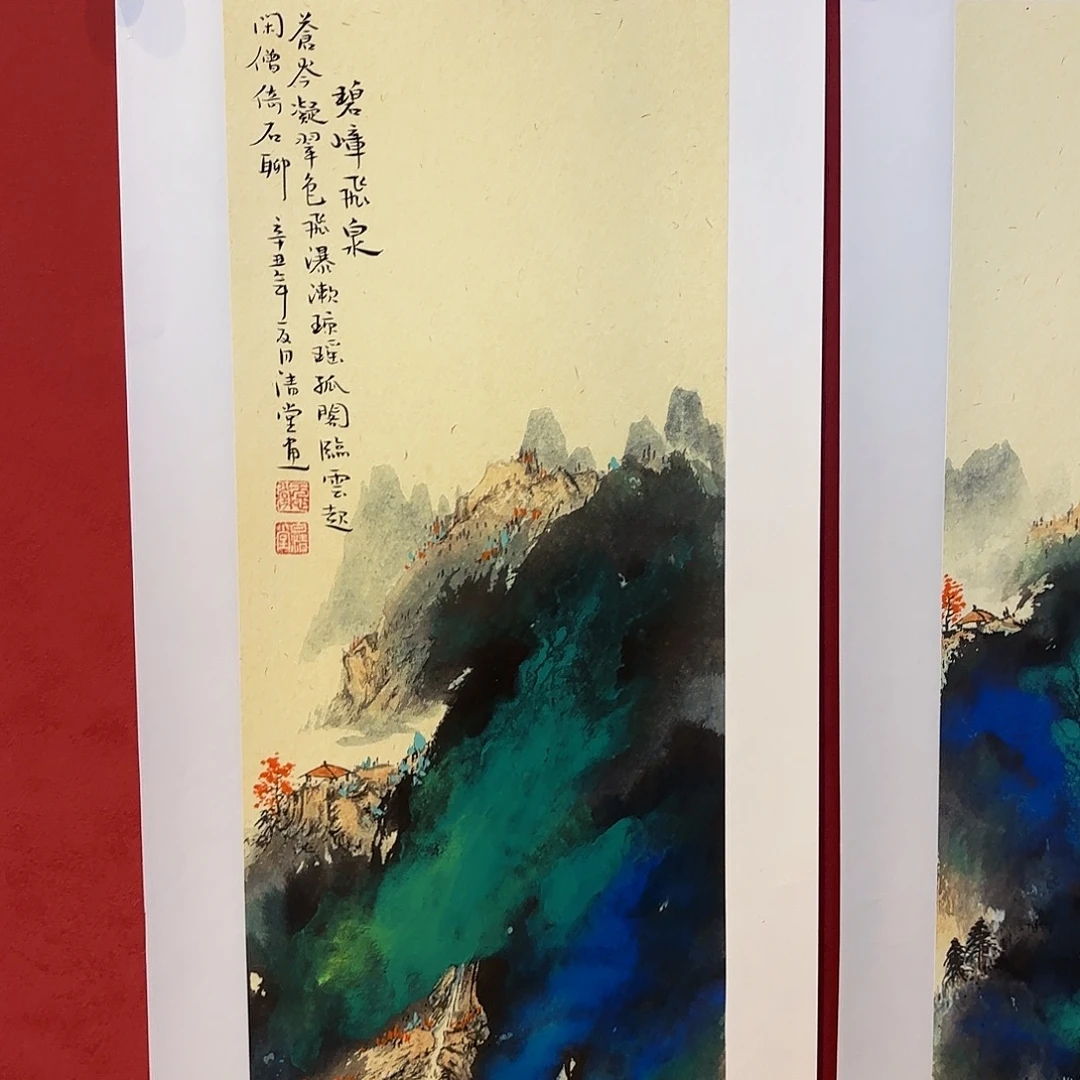 碧嶂飛泉
蒼岑凝翠色飛瀑漱琼瑶孤閣臨雲起
閑僧倚石聊
辛丑年夏日清堂画